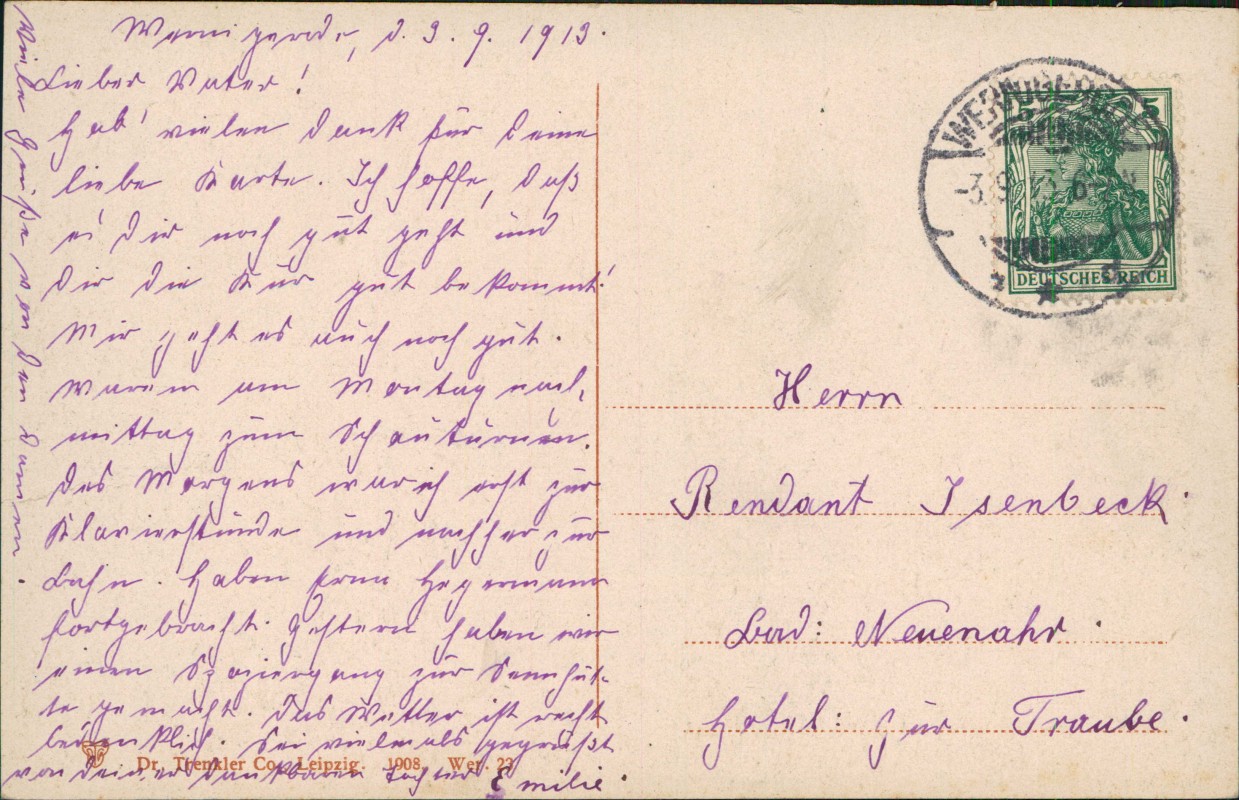 Wernigerode, d. 3. 9. 1913.
Lieber Vater!
Hab' vielen Dank für Deine
liebe Karte. Ich hoffe, daß
es Dir noch gut geht und
Dir die Kur gut bekommt!
Mir geht es auch noch gut.
Waren am Montag nach-
mittag zum Schauturnen.
Des Morgens war ich erst zur
Klavierstunde und nachher zur
Bahn. Haben Frau Hegermann
fortgebracht. Gestern haben wir
einen Spaziergang zur Sennhüt-
te gemacht. Das Wetter ist recht
Sei vielmals gegrüßt
von Deiner dankbaren Tochter Emilie.
Viele Grüße von den Damen.
Dr. Trenkler Co., Leipzig. 1908. Wer. 23
WERNIGERO
-3.9.13.6
5 5
DEUTSCHES REICH
Herrn
Rendant Isenbeck.
Bad: Neuenahr.
Hotel: zur Traube.